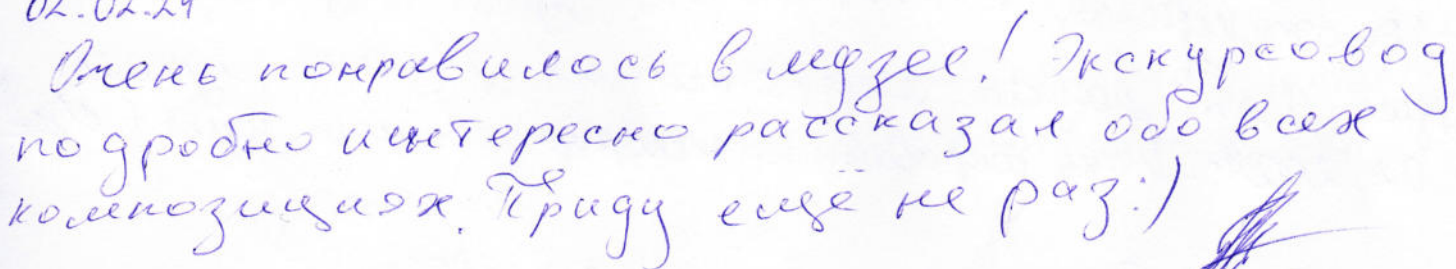 02.02.24
Очень понравилось в музее! Экскурсовод
подробно интересно рассказал обо всех
композициях. Приду ещё не раз:)